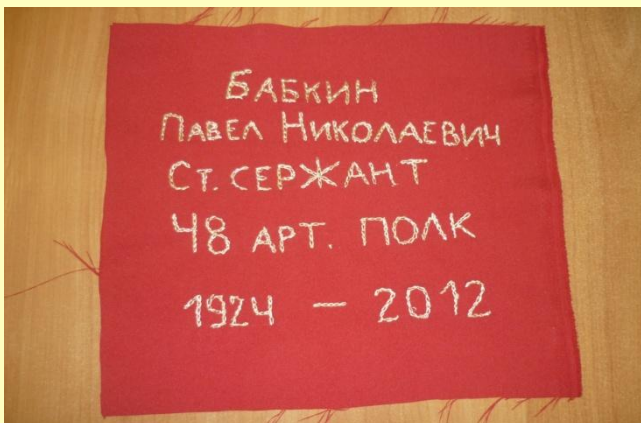 БАБКИН
ПАВЕЛ НИКОЛАЕВИЧ
СТ. СЕРЖАНТ
48 АРТ. ПОЛК
1924 — 2012